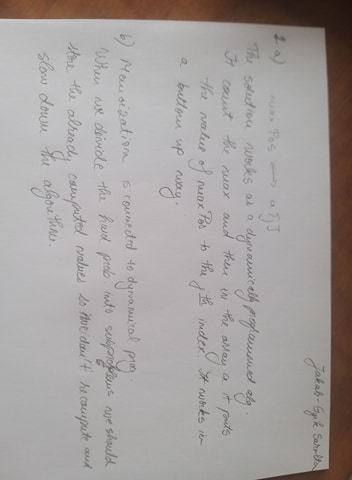 Jakab-Gyik Sarolta
2. a) max Pos ⟷ a[j]
The solution works as a dynamically programmed alg.
It count the max and then in the array a it puts
the value of maxPos to the jth index. It works in
a bottom up way.
b) Memoization is connected to dynamical prog.
When we divide the hard prob into subproblems we should
store the already computed values so we don't recompute and
slow down the algorithm.